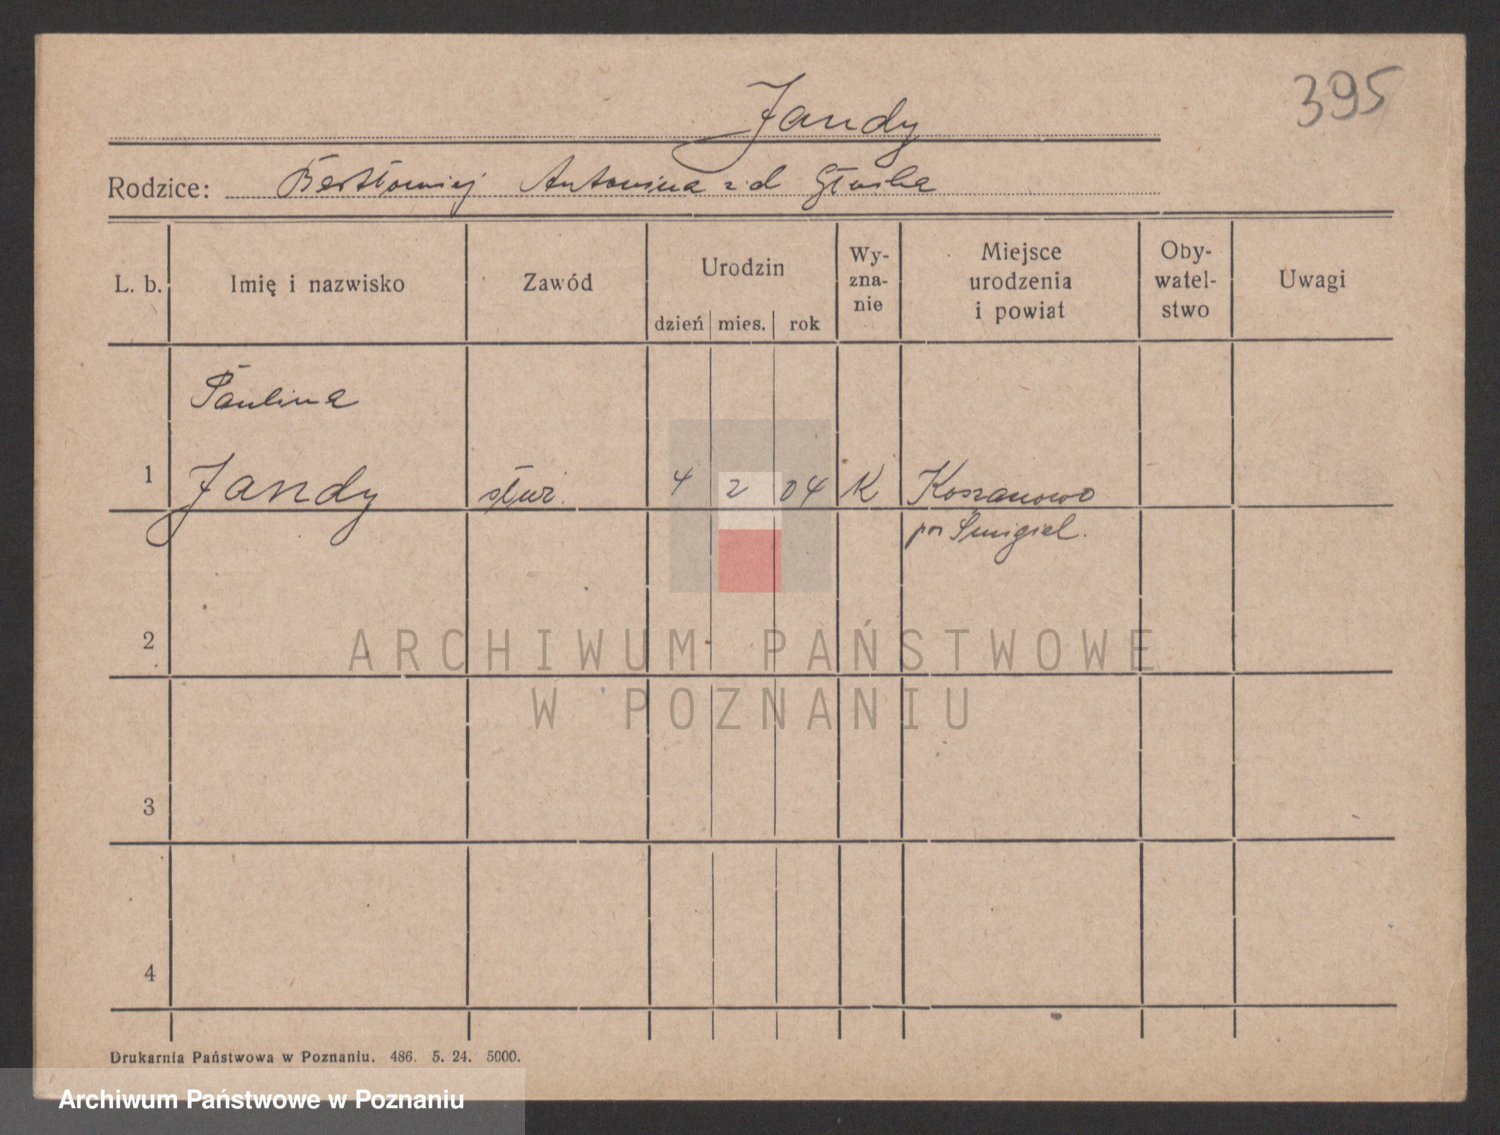 395
Jandy
Rodzice: Bartłomiej Antonina z d
L. b.
Imię i nazwisko
Zawód
Urodzin
dzień mies. rok
Wy-
zna-
nie
Miejsce
urodzenia
i powiat
Oby-
watel-
stwo
Uwagi
Paulina
1 Jandy służ. 4 2 04 K Koszanowo
pow Śmigiel.
2
3
4
ARCHIWUM PAŃSTWOWE
W POZNANIU
Drukarnia Państwowa w Poznaniu. 486. 5. 24. 5000.
Archiwum Państwowe w Poznaniu